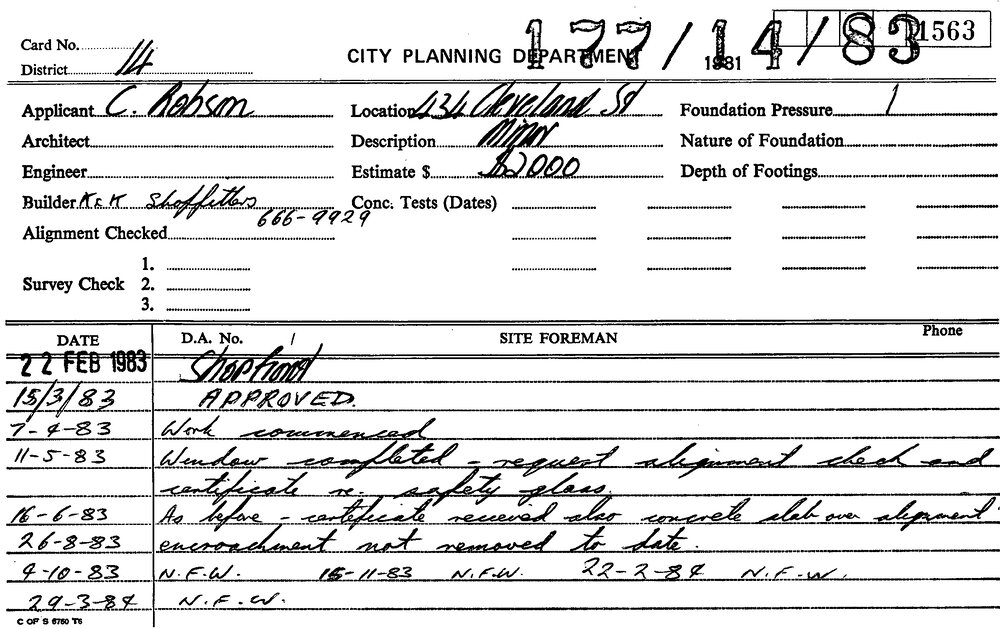 1563
177/14/83
Card No. CITY PLANNING DEPARTMENT 1981
District 114
Applicant C. Robson Location 434 Cleveland St Foundation Pressure
Architect Description Minor Nature of Foundation
Engineer Estimate $ $2000 Depth of Footings
Builder K & K Shopfitters Conc. Tests (Dates)
666-9929
Alignment Checked
1.
Survey Check 2.
3.
DATE D.A. No. SITE FOREMAN Phone
22 FEB 1983 Shopfront
15/3/83 APPROVED.
7-4-83 Work commenced
11-5-83 Window completed - request alignment check and
certificate re. safety glass.
16-6-83 As before - certificate received also concrete slab over alignment
26-8-83 encroachment not removed to date.
4-10-83 N.F.W. 15-11-83 N.F.W. 22-2-84 N.F.W.
29-3-84 N.F.W.
C OF S 6760 T6